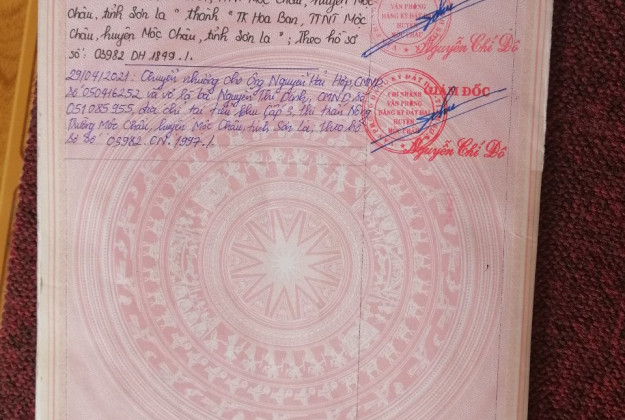 Châu, tỉnh Sơn La " thành " TK Hoa Ban, TTNT Mộc
Châu, huyện Mộc Châu, tỉnh Sơn La "; Theo hồ sơ
số: 03982. DH. 1849. 1.
29/04/2021: Chuyển nhượng cho ông Nguyễn Hải Hợp, CMND
Số 050416252 và vợ là bà Nguyễn Thị Dinh, CMND số
051.085.955, địa chỉ tại tiểu khu Cấp 3, thị trấn Nông
trường Mộc Châu, huyện Mộc Châu, tỉnh Sơn La, theo hồ
sơ số: 03982. CN. 1997. 1.
HUYỆN
Nguyễn Chí Đô
GIÁM ĐỐC
CHI NHÁNH
VĂN PHÒNG
ĐĂNG KÝ ĐẤT ĐAI
HUYỆN
MỘC CHÂU
Nguyễn Chí Đô